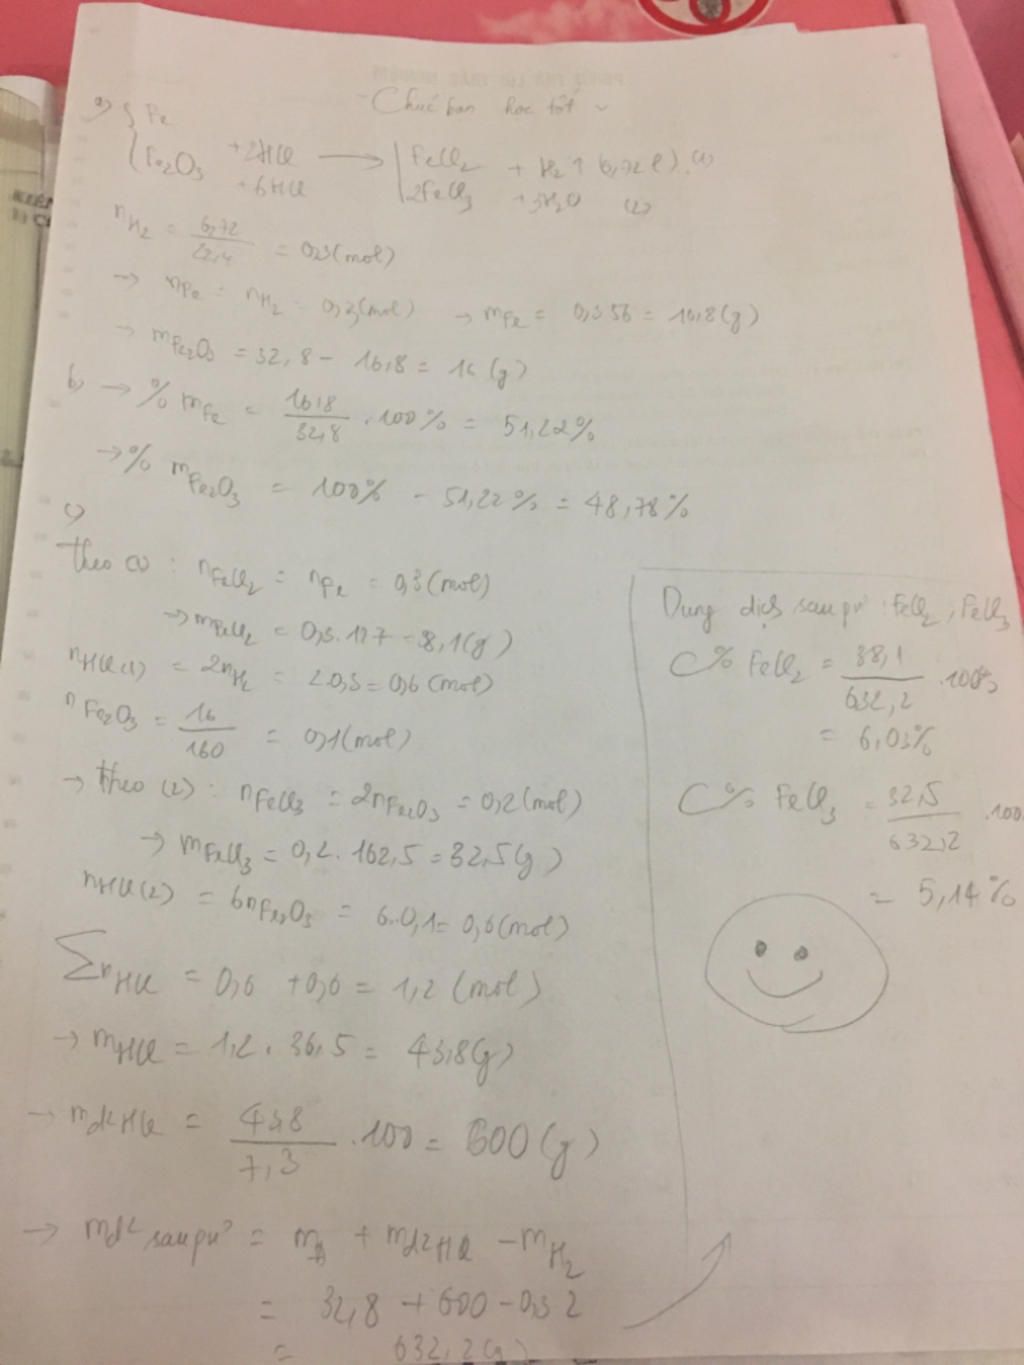 Chúc bạn học tốt
a) { Fe
Fe2O3 +2HCl → FeCl2 + H2↑ 6,72 l) (1)
+6HCl 2FeCl3 +3H2O (2)
nH2 = 6,72/22,4 = 0,3 (mol)
→ nFe = nH2 = 0,3 (mol) → mFe = 0,3.56 = 16,8 (g)
→ mFe2O3 = 32,8 - 16,8 = 16 (g)
b) → % mFe = 16,8/32,8 . 100% = 51,22%
→ % mFe2O3 = 100% - 51,22% = 48,78%
c)
Theo (1) : nFeCl2 = nFe = 0,3 (mol)
→ mFeCl2 = 0,3.127 = 8,1 (g)
nHCl(1) = 2nH2 = 2.0,3 = 0,6 (mol)
nFe2O3 = 16/160 = 0,1 (mol)
→ Theo (2) : nFeCl3 = 2nFe2O3 = 0,2 (mol)
→ mFeCl3 = 0,2. 162,5 = 32,5 (g)
nHCl(2) = 6nFe2O3 = 6.0,1 = 0,6 (mol)
∑nHCl = 0,6 + 0,6 = 1,2 (mol)
→ mHCl = 1,2 . 36,5 = 43,8 (g)
→ mddHCl = 43,8/7,3 . 100 = 600 (g)
→ mdd sau pư = mA + mddHCl - mH2
= 32,8 + 600 - 0,3 2
= 632,2 (g)
Dung dịch sau pư : FeCl2, FeCl3
C% FeCl2 = 38,1/632,2 .100%
= 6,03%
C% FeCl3 = 32,5/632,2 .100
= 5,14%